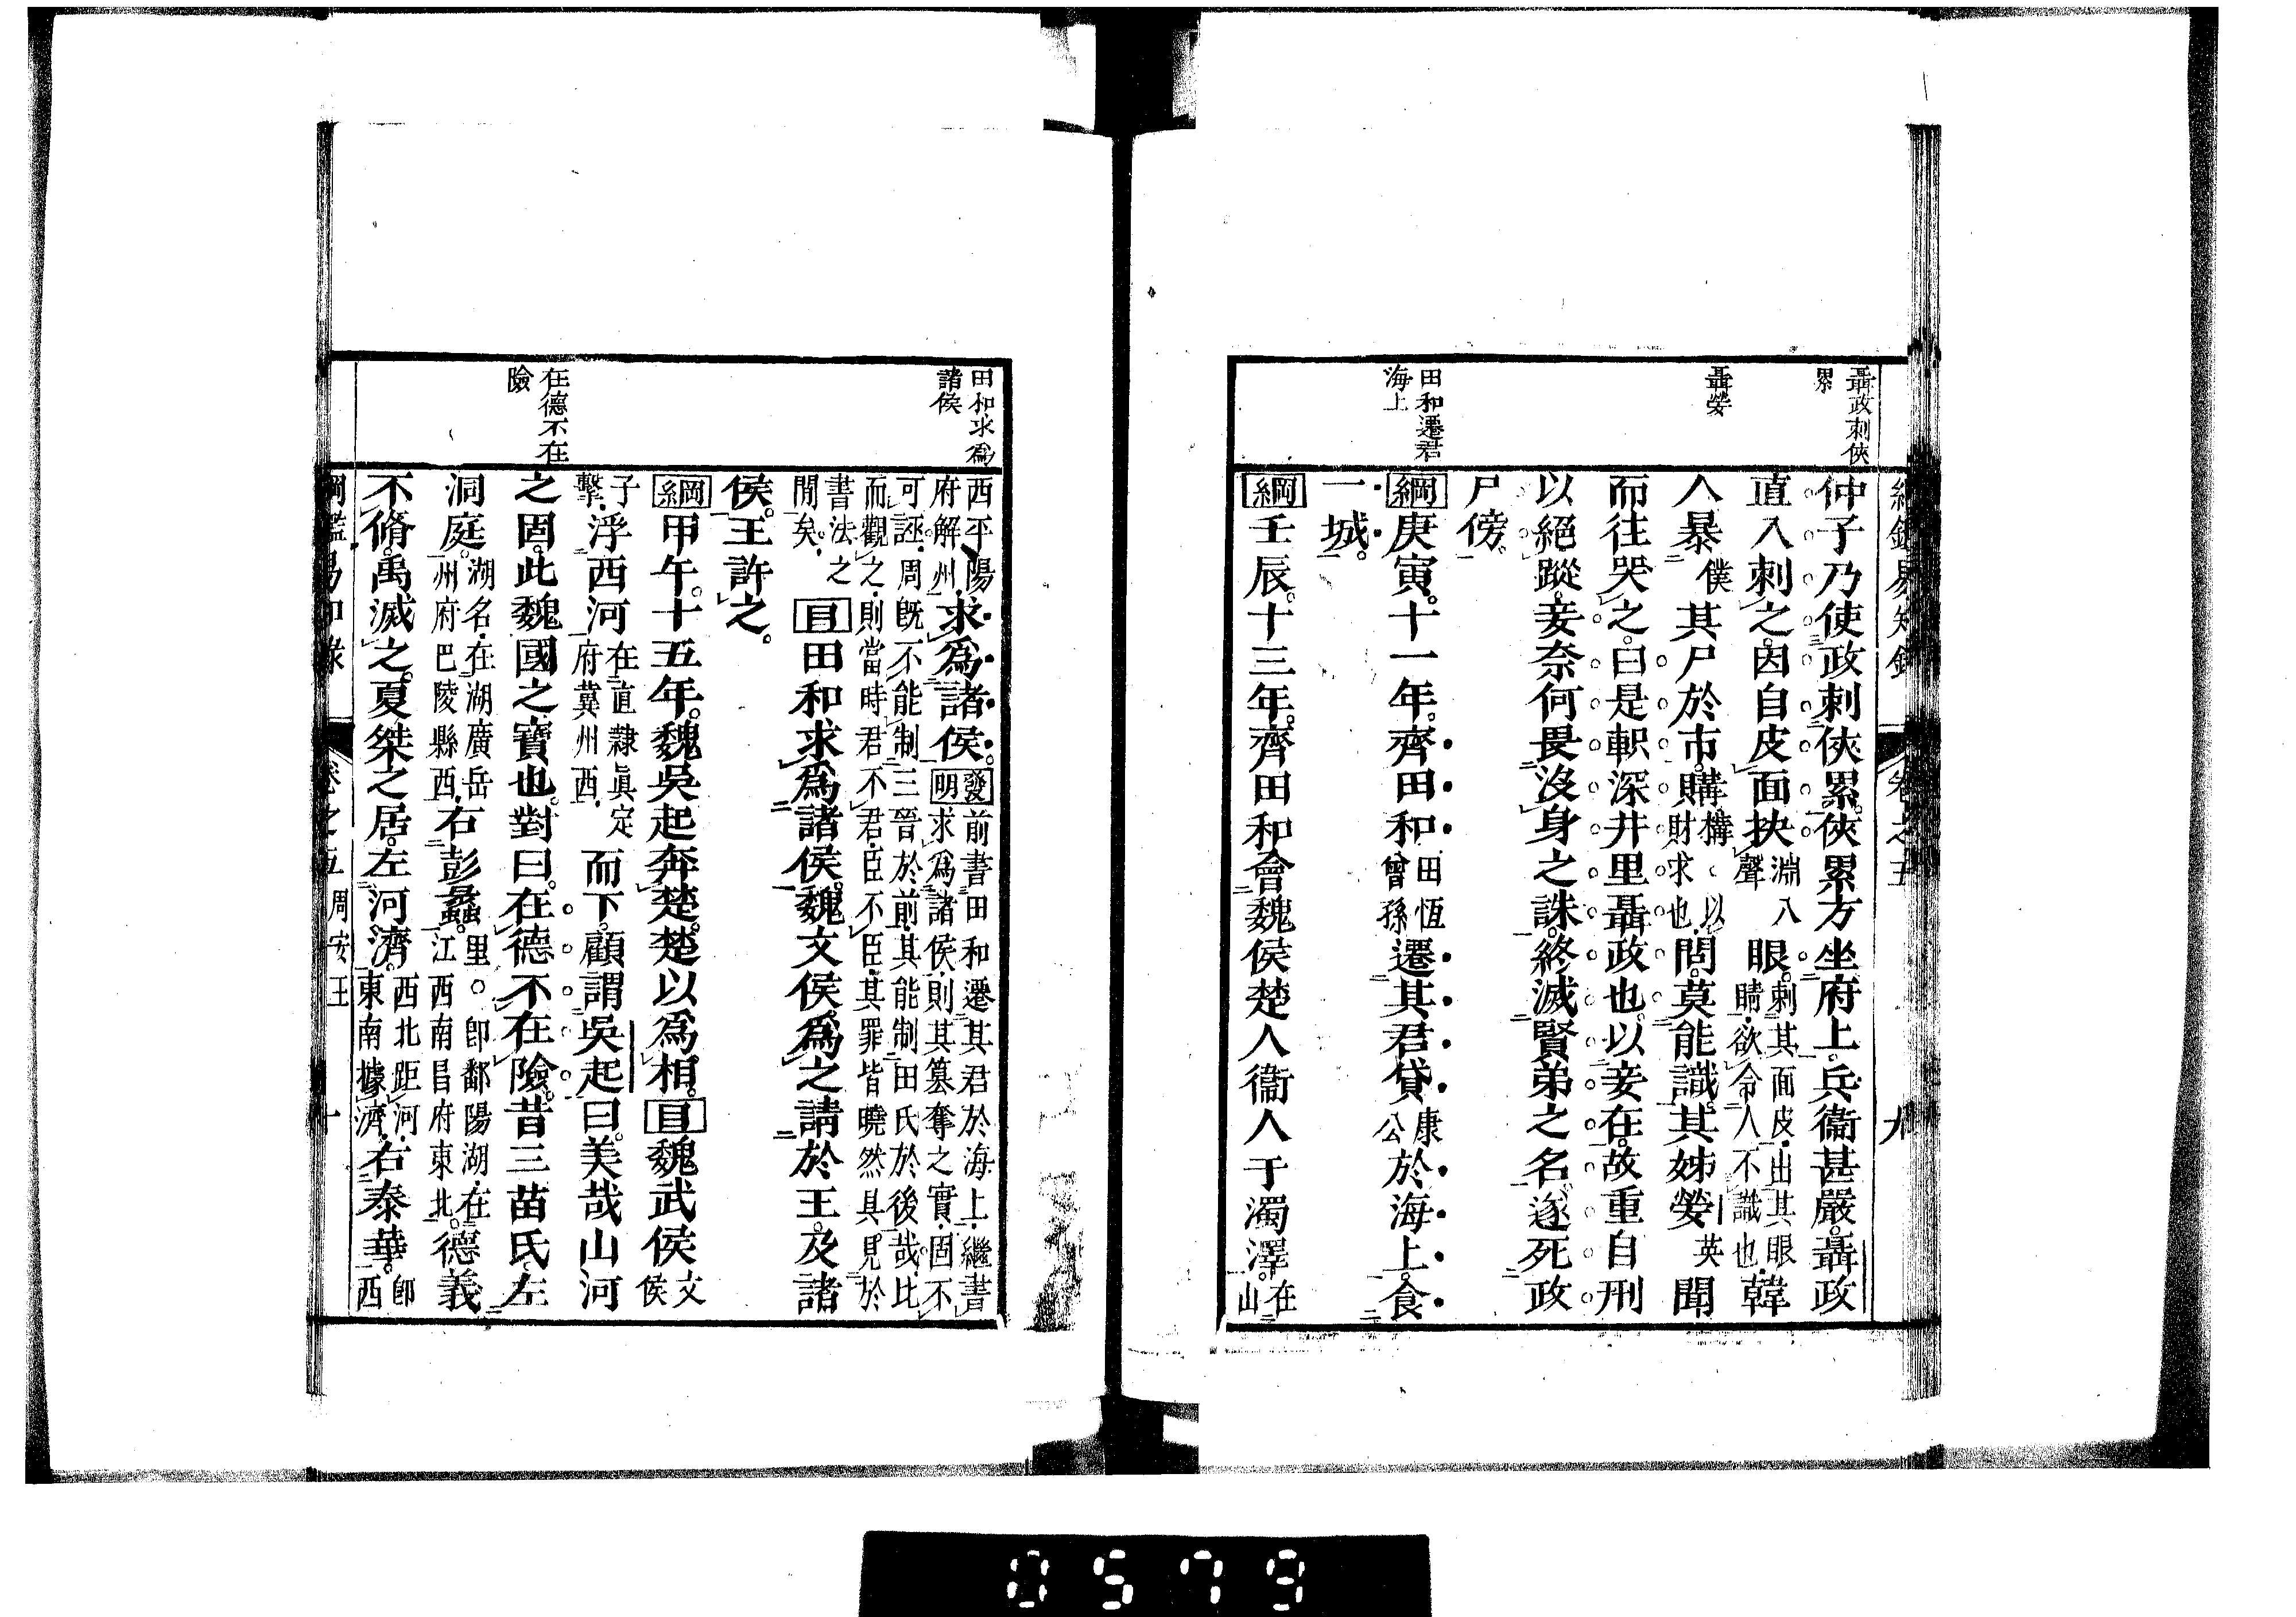 綱鑑易知錄
卷之五
九
聶政刺俠
累
聶嫈
田和遷君
海上
仲子乃使政刺俠累。俠累方坐府上。兵衞甚嚴。聶政
直入刺之。因自皮面抉淵入聲眼。刺其面皮。出其眼睛。欲令人不識也。韓
人暴僕其尸於市。購構、以財求也。問。莫能識。其姊嫈英聞
而往哭之。曰是軹深井里聶政也。以妾在。故重自刑
以絕蹤。妾奈何畏沒身之誅。終滅賢弟之名。遂死政
尸傍。
綱庚寅。十一年。齊田和田恆曾孫遷其君貸康公於海上。食
一城。
綱壬辰。十三年。齊田和會魏侯楚人衞人于濁澤。在山
田和求爲
諸侯
在德不在
險
西平陽府解州。求爲諸侯。發明前書田和遷其君於海上。繼書求爲諸侯。則其篡奪之實。固不
可誣。周旣不能制三晉於前。其能制田氏於後哉。比
而觀之。則當時君不君。臣不臣。其罪皆曉然具見於
書法之閒矣。目田和求爲諸侯。魏文侯。爲之請於王。及諸
侯。王許之。
綱甲午。十五年。魏吳起奔楚。楚以爲相。目魏武侯文侯
子擊。浮西河在直隸眞定府冀州西。而下。顧謂吳起曰。美哉山河
之固。此魏國之寶也。對曰。在德不在險。昔三苗氏。左
洞庭。湖名。在湖廣岳州府巴陵縣西。右彭蠡。里。卽鄱陽湖。在江西南昌府東北。德義
不脩。禹滅之。夏桀之居。左河濟。西北距河。東南據濟。右泰華。卽西
綱鑑易知錄
卷之五
周安王
十
0579